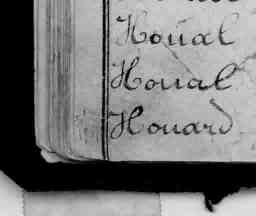 Houal
Houal
Houard